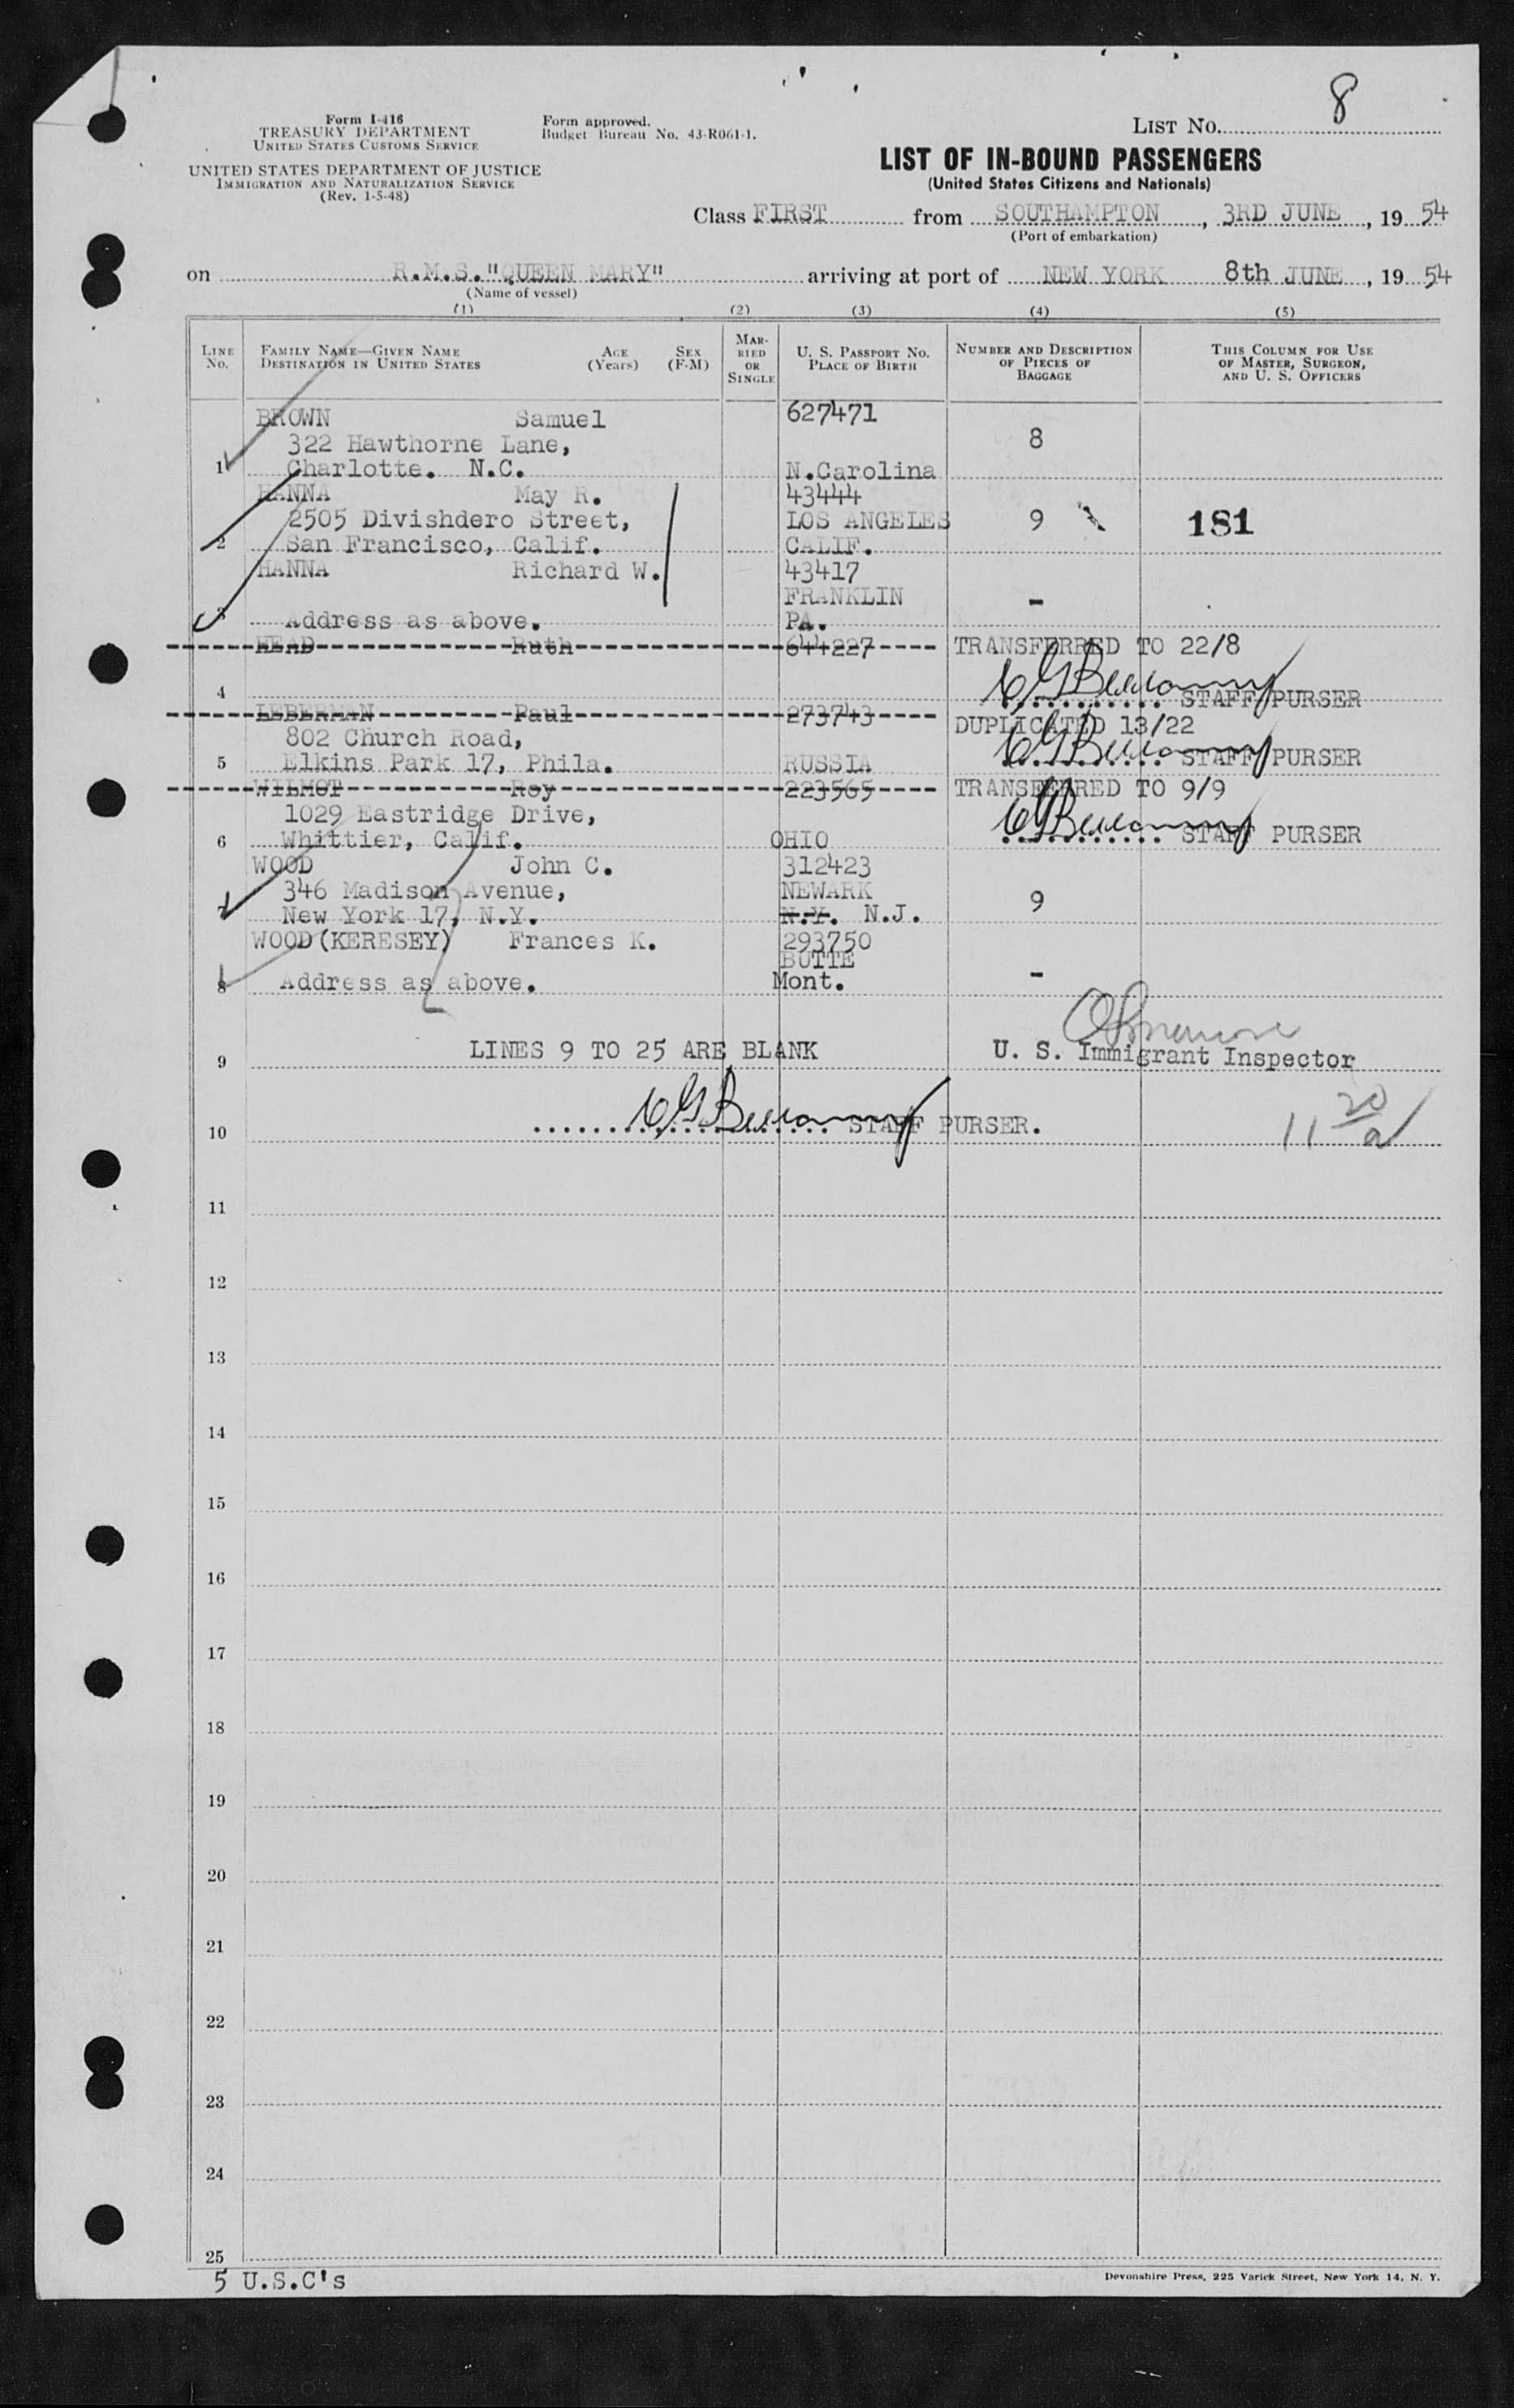 8
Form I-416
TREASURY DEPARTMENT
UNITED STATES CUSTOMS SERVICE
UNITED STATES DEPARTMENT OF JUSTICE
IMMIGRATION AND NATURALIZATION SERVICE
(Rev. 1-5-48)
Form approved.
Budget Bureau No. 43-R061-1.
LIST NO.
LIST OF IN-BOUND PASSENGERS
(United States Citizens and Nationals)
Class FIRST from SOUTHAMPTON, 3RD JUNE, 1954
(Port of embarkation)
on R.M.S."QUEEN MARY" arriving at port of NEW YORK 8th JUNE, 1954
(Name of vessel)
(1) (2) (3) (4) (5)
LINE NO.
FAMILY NAME—GIVEN NAME
DESTINATION IN UNITED STATES
AGE (Years)
SEX (F-M)
MARRIED OR SINGLE
U. S. PASSPORT NO.
PLACE OF BIRTH
NUMBER AND DESCRIPTION
OF PIECES OF
BAGGAGE
THIS COLUMN FOR USE
OF MASTER, SURGEON,
AND U. S. OFFICERS
BROWN Samuel 627471
322 Hawthorne Lane, 8
1 Charlotte. N.C. N.Carolina
HANNA May R. 43444
2505 Divishdero Street, LOS ANGELES 9 181
2 San Francisco, Calif. CALIF.
HANNA Richard W. 43417
FRANKLIN -
3 Address as above. PA.
HEAD Ruth 644227 TRANSFERRED TO 22/8
4 STAFF PURSER
LEBERMAN Paul 273743 DUPLICATED 13/22
802 Church Road,
5 Elkins Park 17, Phila. RUSSIA STAFF PURSER
WILMOT Roy 223565 TRANSFERRED TO 9/9
1029 Eastridge Drive,
6 Whittier, Calif. OHIO STAFF PURSER
WOOD John C. 312423
346 Madison Avenue, NEWARK 9
7 New York 17, N.Y. N.Y. N.J.
WOOD(KERESEY) Frances K. 293750
BUTTE
8 Address as above. Mont. -
9 LINES 9 TO 25 ARE BLANK U. S. Immigrant Inspector
10 STAFF PURSER. 11 20/a
11
12
13
14
15
16
17
18
19
20
21
22
23
24
25
5 U.S.C's
Devonshire Press, 225 Varick Street, New York 14, N. Y.